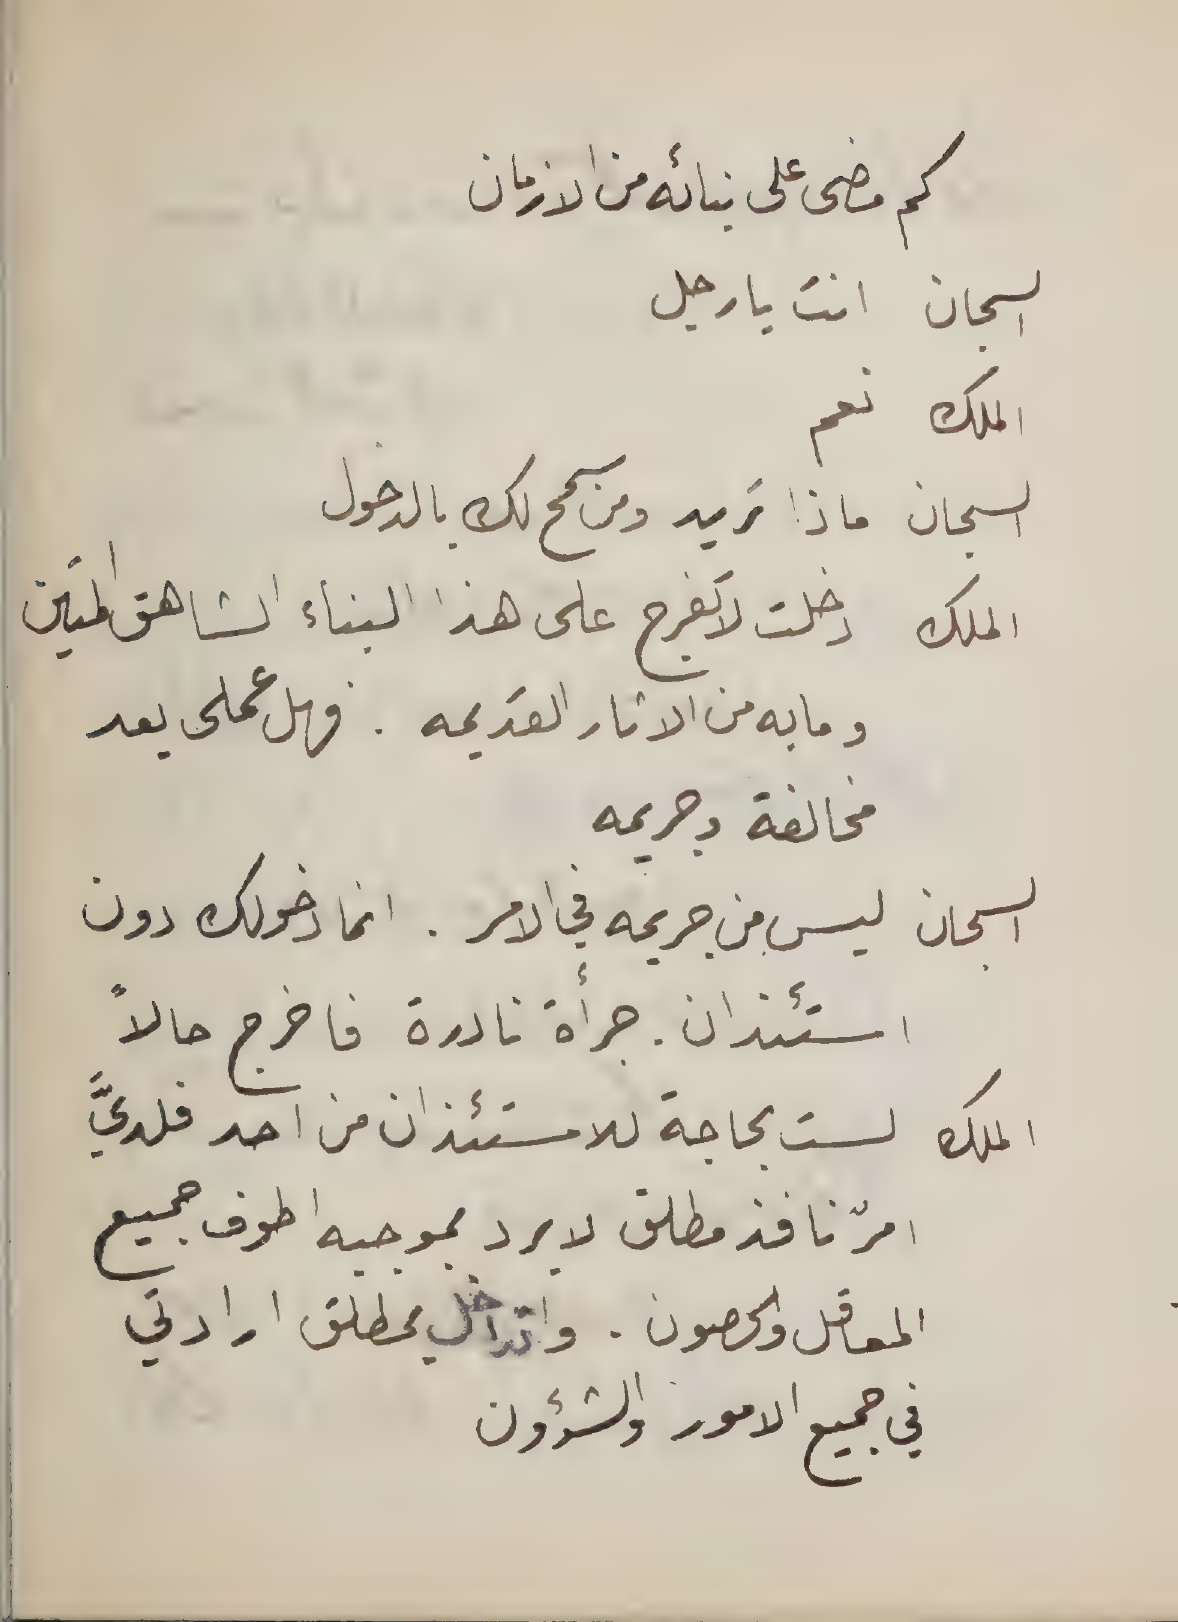 كم مضى على بنائه من الازمان
السجان انت يا رجل
الملك نعم
السجان ماذا تريد ومن سمح لك بالدخول
الملك دخلت لأتفرج على هذا البناء الشاهق المتين
وما به من الاثار القديمه . فهل عملي يعد
مخالفة وجريمه
السجان ليس من جريمه في الامر . انما دخولك دون
استئذان . جرأة نادرة فاخرج حالاً
الملك لست بحاجة للاستئذان من احد فلديَّ
امرّ نافذ مطلق لا يرد بموجبه اطوف جميع
المعاقل والحصون . واتداخل بمطلق ارادتي
في جميع الامور والشؤون